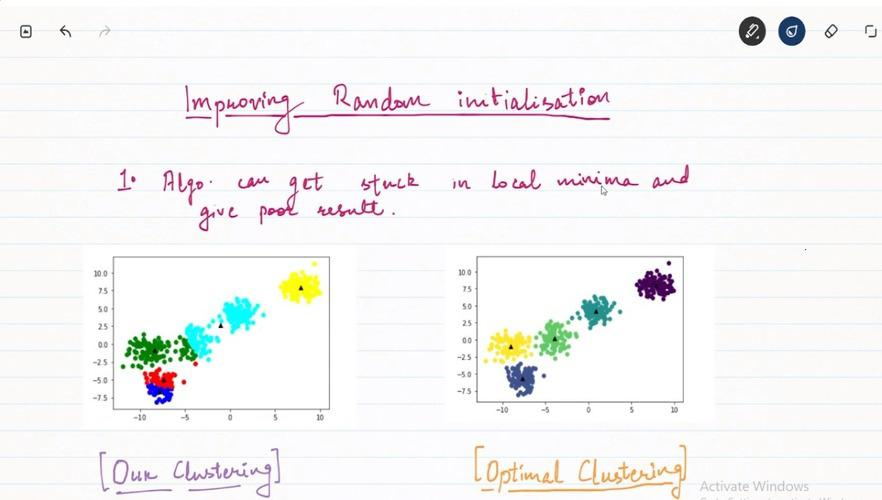 Improving Random initialisation
1. Algo. can get stuck in local minima and
give poor result.
10.0
7.5
5.0
2.5
0.0
−2.5
−5.0
−7.5
−10 −5 0 5 10
10.0
7.5
5.0
2.5
0.0
−2.5
−5.0
−7.5
−10 −5 0 5 10
[Our Clustering]
[Optimal Clustering]
Activate Windows